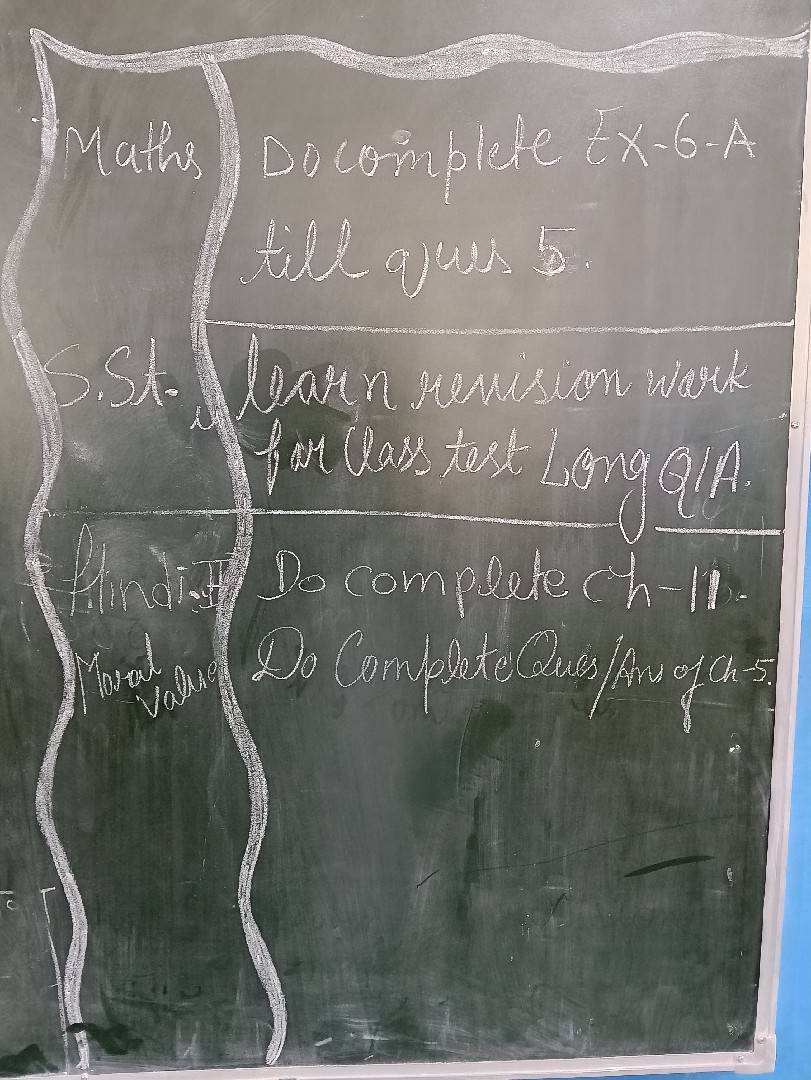 Maths Do complete Ex-6-A
till ques 5.
S.St. learn revision work
for Class test Long Q/A.
Hindi-II Do complete Ch-11.
Moral Do Complete Ques/Ans of Ch-5.
Value